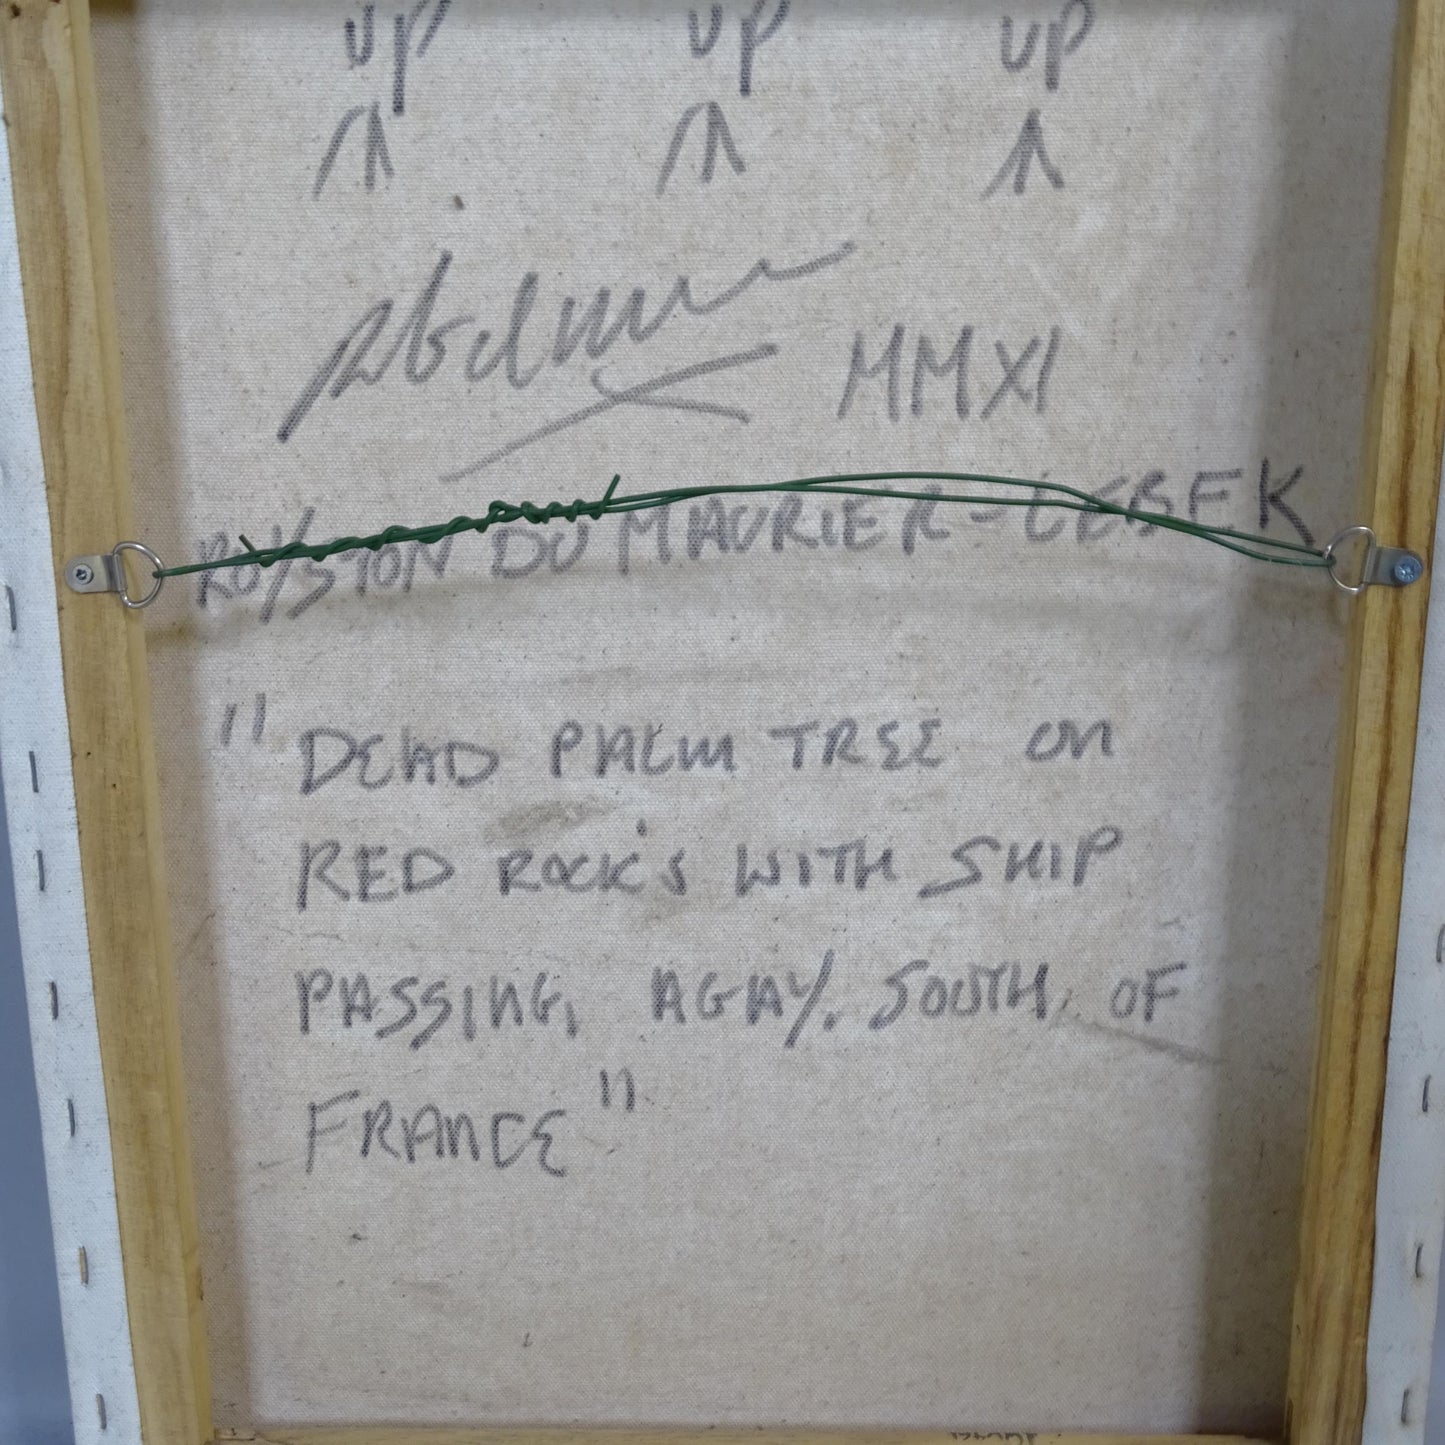 UP UP UP
MMXI
ROYSTON DU MAURIER-LEBEK
"DEAD PALM TREE ON
RED ROCK'S WITH SHIP
PASSING, AGAY. SOUTH, OF
FRANCE"